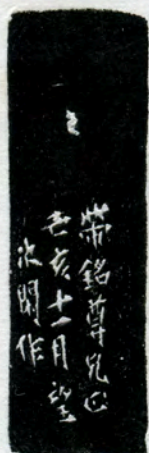 榮銘尊兄正
辛亥十一月望
次閑作